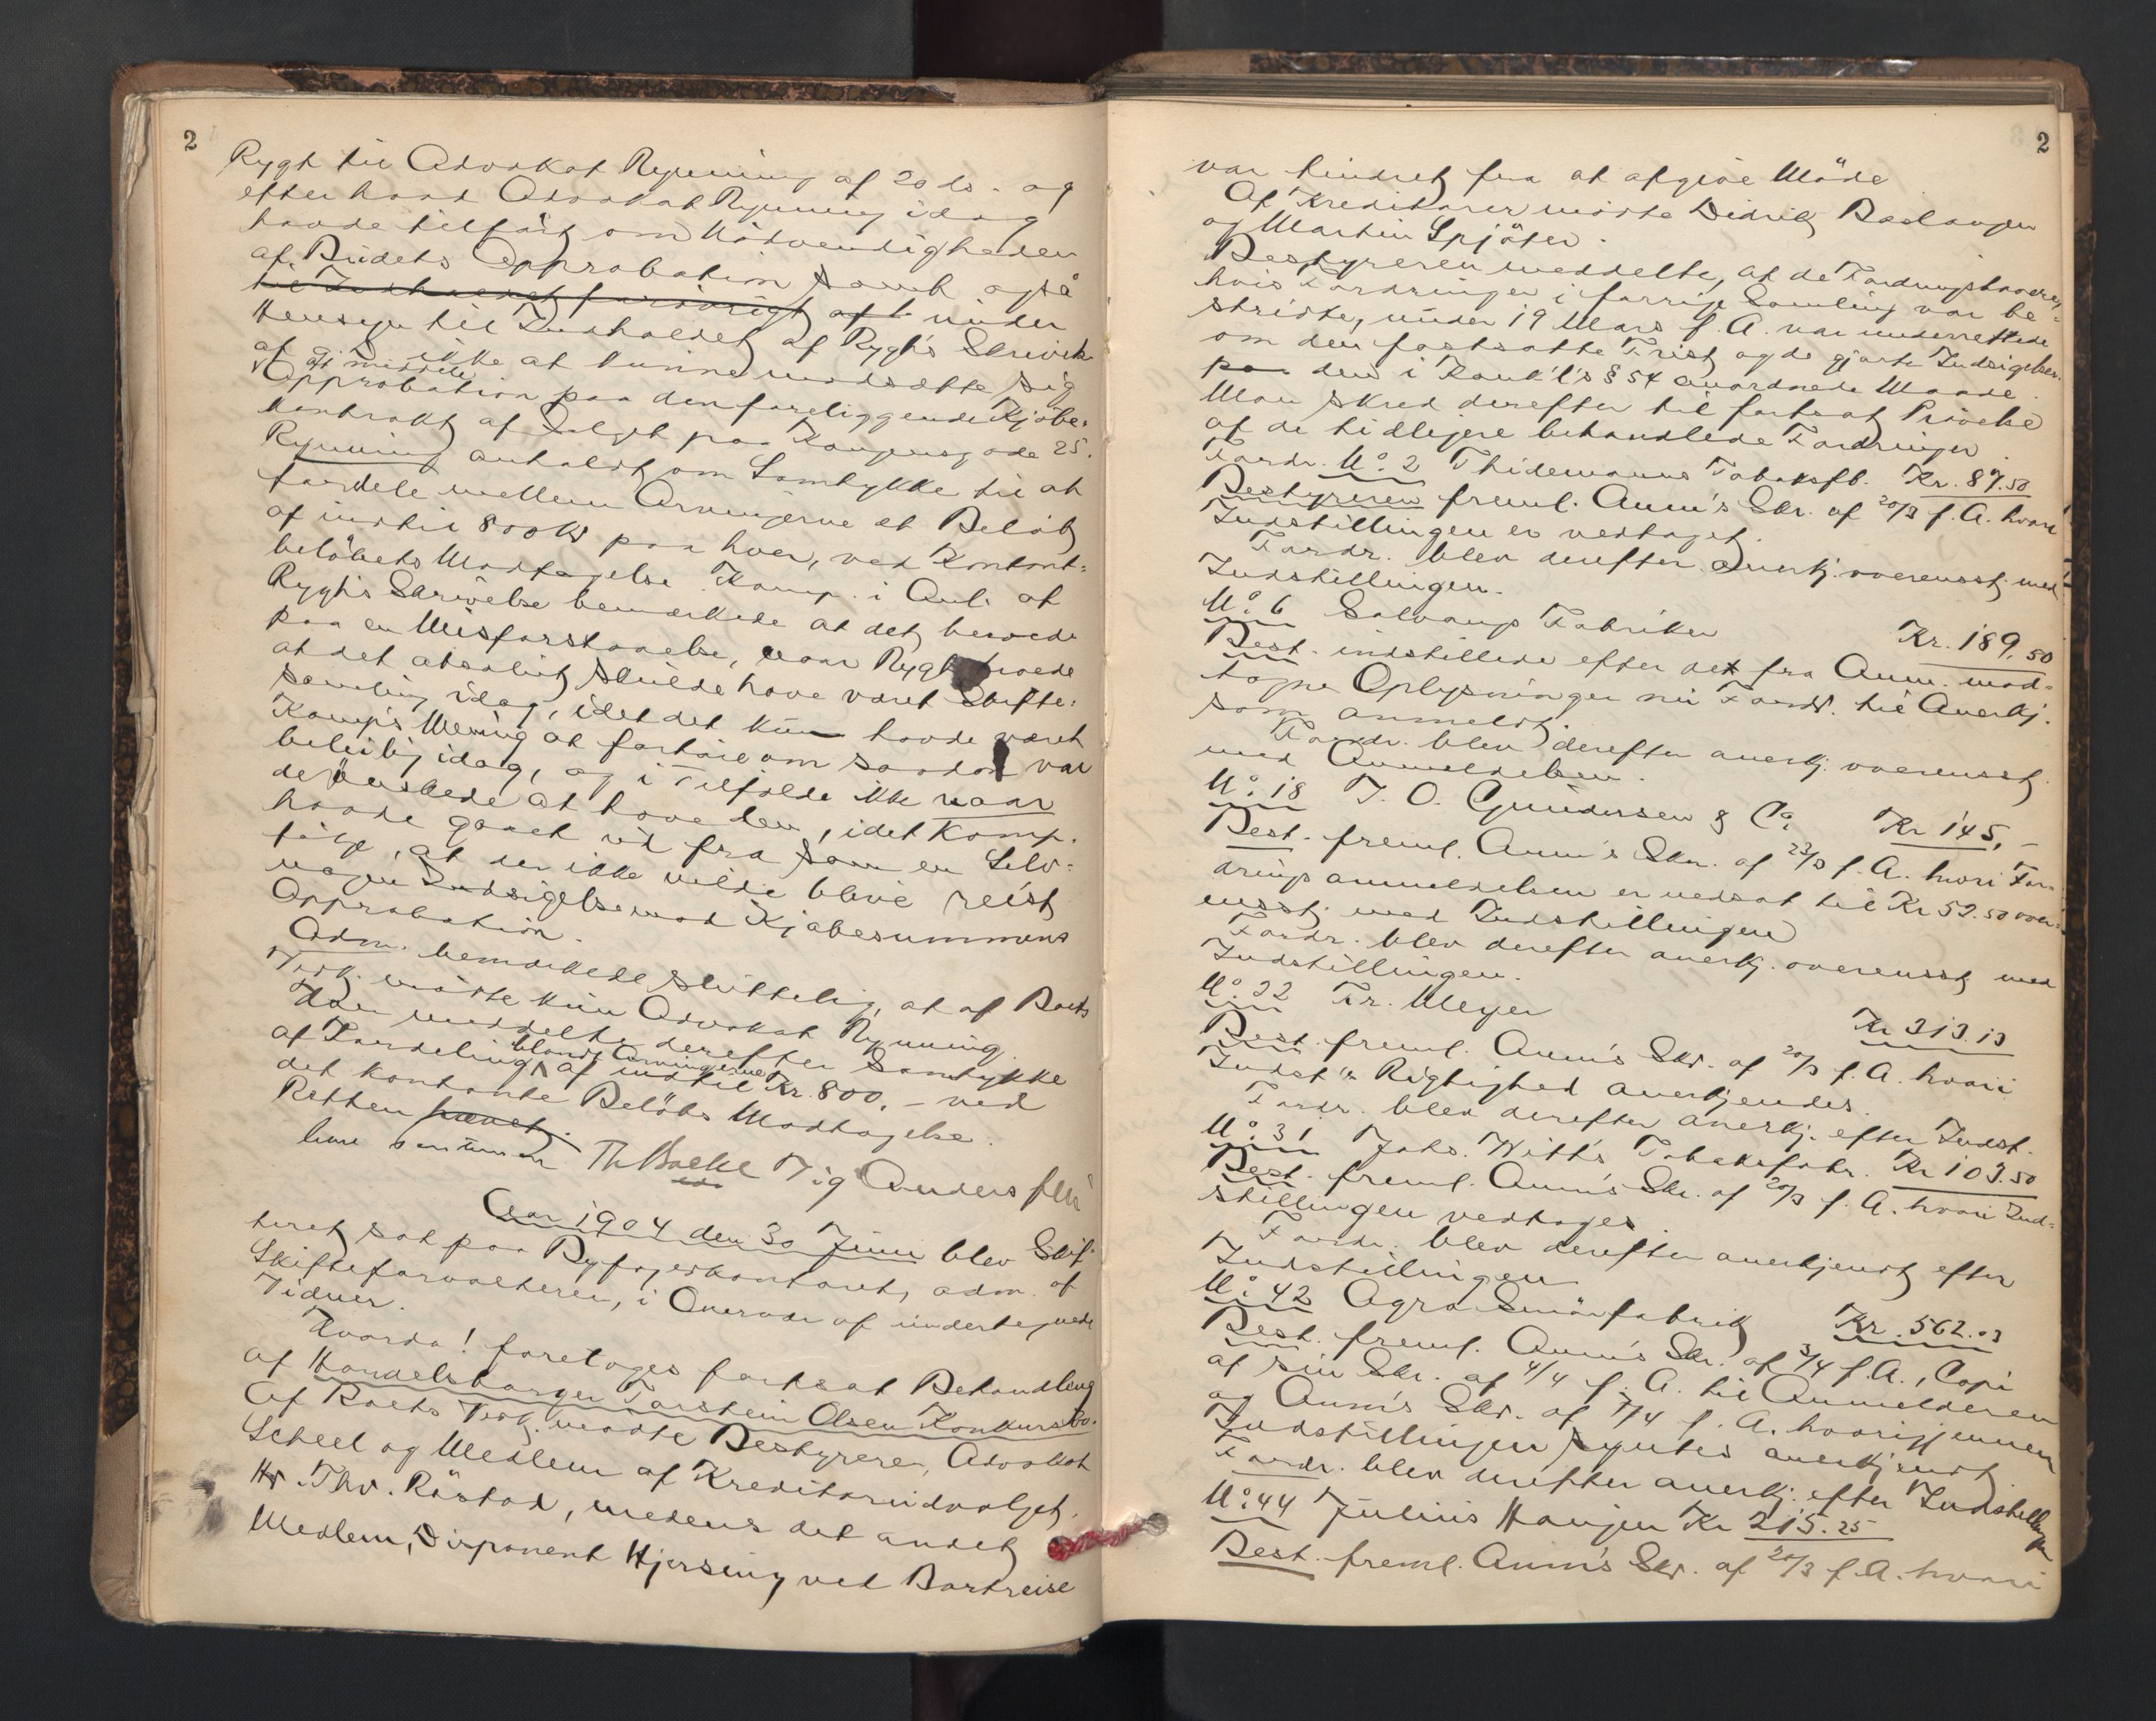 2
Rygh til Advokat Rynning af 20 ds. og
efter hvad Advokat Rynning idag
havde tilført om Nödvendigheden
af Budets Approbation samt også
til Indholdet forövrigt af t under
Hensyn til Indholdet af Ryghs Skrivelse
af ikke at kunne modsætte sig
at meddele
Approbation paa den foreliggende Kjöbe-
kontrakt af Salget paa Kongensgade 25.
Rynning anholdt om Samtykke til at
fordele mellem Arvingerne et Belöb
af indtil 800 Kr paa hver, ved Kontant-
belöbets Modtagelse. Komp. i Anl. af
Ryghs Skrivelse bemærkede at det beroede
paa en Misforstaaelse, naar Rygh troede
at det absolut skulde have været Skifte-
samling idag, idet det kun havde været
Komps Mening at forhöre om saadan var
beleilig idag, og i Tilfælde ikke naar
de önskede at have den, idet Komp.
havde gaaet ud fra som en Selv-
fölge, at der ikke vilde blive reist
nogen Indsigelse mod Kjöbesummens
Approbation.
Adm. bemærkede sluttelig, at af Boets
Vedk. mödte kun Advokat Rynning.
Den meddelte derefter Samtykke
af Fordeling blandt Arvingerne af indtil Kr. 800.- ved
det kontante Belöbs Modtagelse.
Retten hævet.
Th. Bache Vig Andersen
Aar 1904 den 30 Juni blev Skif-
teret sat paa Byfogedkontoret, adm. af
Skifteforvalteren, i Overvær af undertegnede
Vidner.
Hvorda! foretoges fortsat Behandling
af Handelsborger Torstein Olsen Konkursbo.
Af Boets Vedk. mödte Bestyreren, Advokat
Scheel og Medlem af Kreditorudvalget,
Hr. Thv. Röstad, medens det andet
Medlem, Disponent Hjorsing ved Bortreise
2
var hindret fra at afgive Möde
Af Kreditorer mödte Didrik Baclangen
og Martin Spjöter.
Bestyreren meddelte, at de Fordringshavere,
hvis Fordringer i forrige Samling var be-
stridte, under 19 Mars f.A. var underrettede
om den fastsatte Frist og de gjorte Indsigelser
paa den i Konk'l's § 54 anordnede Maade.
Man skred derefter til fortsat Prövelse
af de tidligere behandlede Fordringer
Fordr. No. 2 Thidemanns Tobaksfb. Kr. 87.50
Bestyreren freml. Anm's Skr. af 20/3 f.A. hvori
Indstillingen er vedtaget.
Fordr. blev derefter anerkj. overensst. med
Indstillingen.
No. 6 Solvangs Fabriker Kr. 189.50
Best. indstillede efter det fra Anm. mod-
tagne Oplysninger nu Fordr. til Anerkj.
som anmeldt.
Fordr. blev derefter anerkj. overensst.
med Anmeldelsen.
No. 18 J. O. Gundersen & Co. Kr 145,-
Best. freml. Anm's Skr. af 23/3 f.A. hvori For-
drings anmeldelsen er nedsat til Kr 52.50 over-
ensst. med Indstillingen
Fordr. blev derefter anerkj. overensst med
Indstillingen.
No. 22 Fr. Meyer Kr 313.13
Best. freml. Anm's Skr. af 20/3 f.A. hvori
Indst's Rigtighed anerkjendes.
Fordr. blev derefter anerkj. efter Indst.
No. 31 Johs. With's Tobaksfabr. Kr 103.50
Best. freml. Anm's Skr. af 20/3 f.A. hvori Ind-
stillingen vedtages.
Fordr. blev derefter anerkjendt efter
Indstillingen
No. 42 Agra Smörfabrik Kr. 562.03
Best. freml. Anm's Skr. af 3/4 f.A., Copi
af sin Skr. af 4/4 f.A. til Anmelderen
og Anm's Skr. af 7/4 f.A. hvorigjennem
Indstillingen syntes anerkjendt
Fordr. blev derefter anerkj. efter Indstillingen
No. 44 Julius Haugen Kr 215.25
Best. freml. Anm's Skr. af 20/3 f.A. hvori